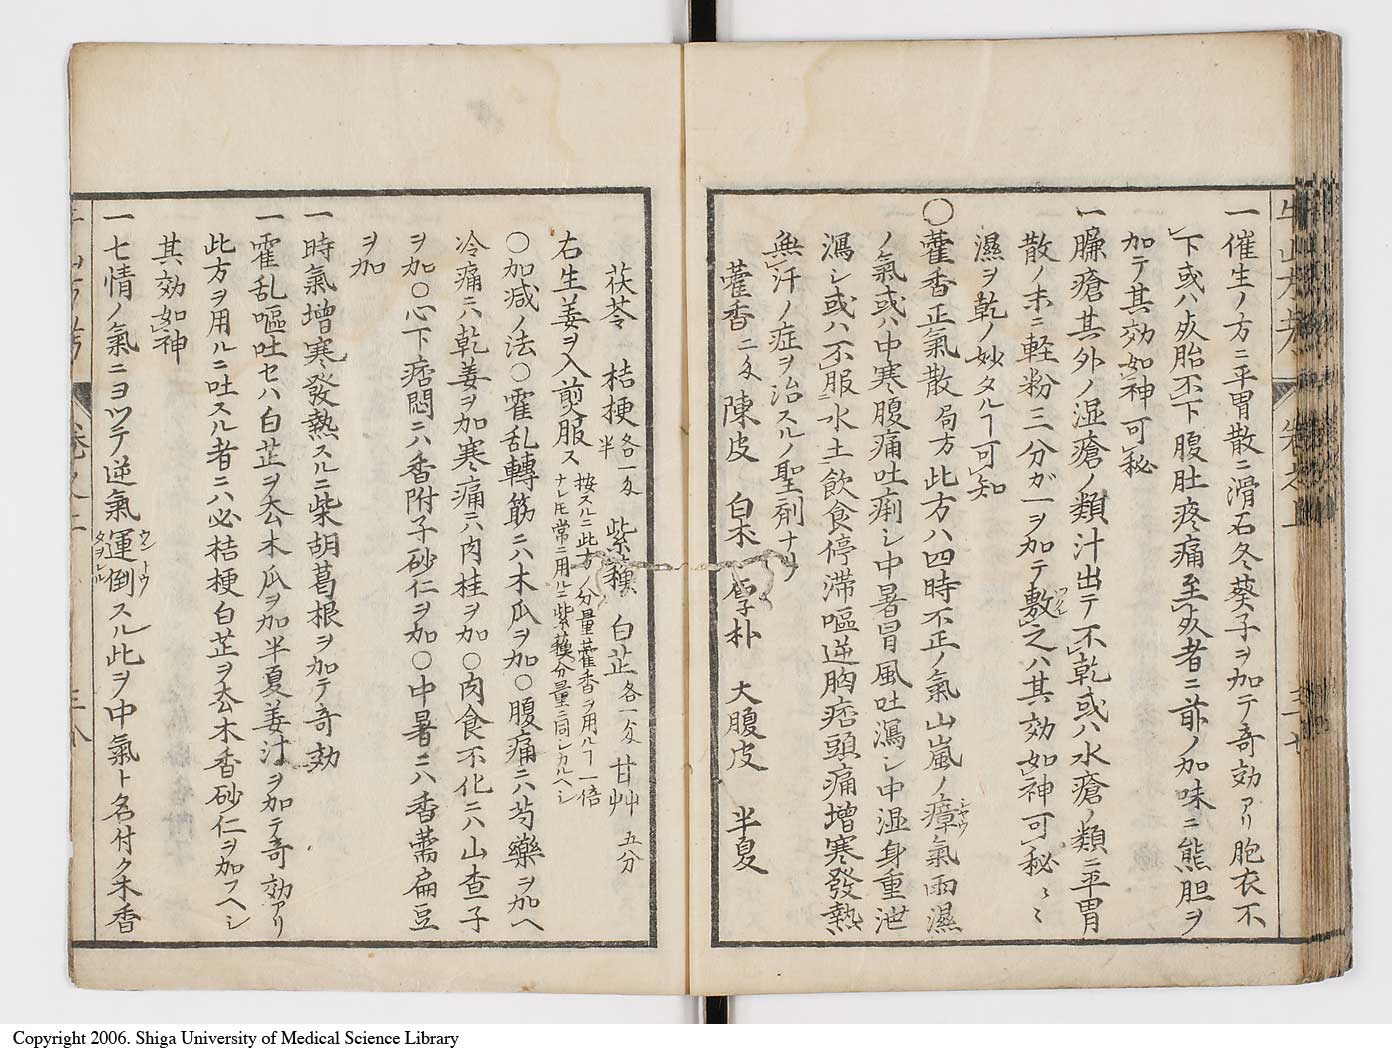 一催生ノ方ニ平胃散ニ滑石冬葵子ヲ加テ奇効アリ胞衣不
下或ハ夾胎不下腹肚疼痛至夾者ニ前ノ加味ニ熊胆ヲ
加テ其効如神可秘
一臁瘡其外ノ湿瘡ノ類汁出テ不乾或ハ水瘡ノ類ニ平胃
散ノ末ニ軽粉三分が一ヲ加テ敷之ハ其効如神可秘〻〻
濕ヲ乾ノ妙タルヿ可知
〇藿香正氣散 局方 此方ハ四時不正ノ氣山嵐ノ瘴氣雨濕
ノ氣或ハ中寒腹痛吐痢シ中暑冒風吐瀉シ中湿身重泄
瀉シ或ハ不服水土飲食停滞嘔逆胸痞頭痛增寒發熱
無汗ノ症ヲ治スルノ聖剤ナリ
藿香二戔 陳皮 白朮 厚朴 大腹皮 半夏
茯苓 桔梗各一戔半 紫蘓 白芷各一戔 甘艸五分
右生姜ヲ入煎服ス 按スルニ此方ノ分量藿香ヲ用ルヿ一倍
ナレ𪜈常ニ用ルニ紫蘓分量ニ同シカルヘシ
〇加減ノ法〇霍乱轉筋ニハ木瓜ヲ加〇腹痛ニハ芍藥ヲ加ヘ
冷痛ニハ乾姜ヲ加寒痛ニハ肉桂ヲ加〇肉食不化ニハ山查子
ヲ加〇心下痞悶ニハ香附子砂仁ヲ加〇中暑ニハ香薷扁豆
ヲ加
一時氣增寒發熱スルニ柴胡葛根ヲ加テ奇効
一霍乱嘔吐セハ白芷ヲ厺木瓜ヲ加半夏姜汁ヲ加テ奇効アリ
此方ヲ用ルニ吐スル者ニハ必桔梗白芷ヲ厺木香砂仁ヲ加スヘシ
其効如神
一七情ノ氣ニヨツテ逆氣運倒スル此ヲ中氣ト名付ク木香